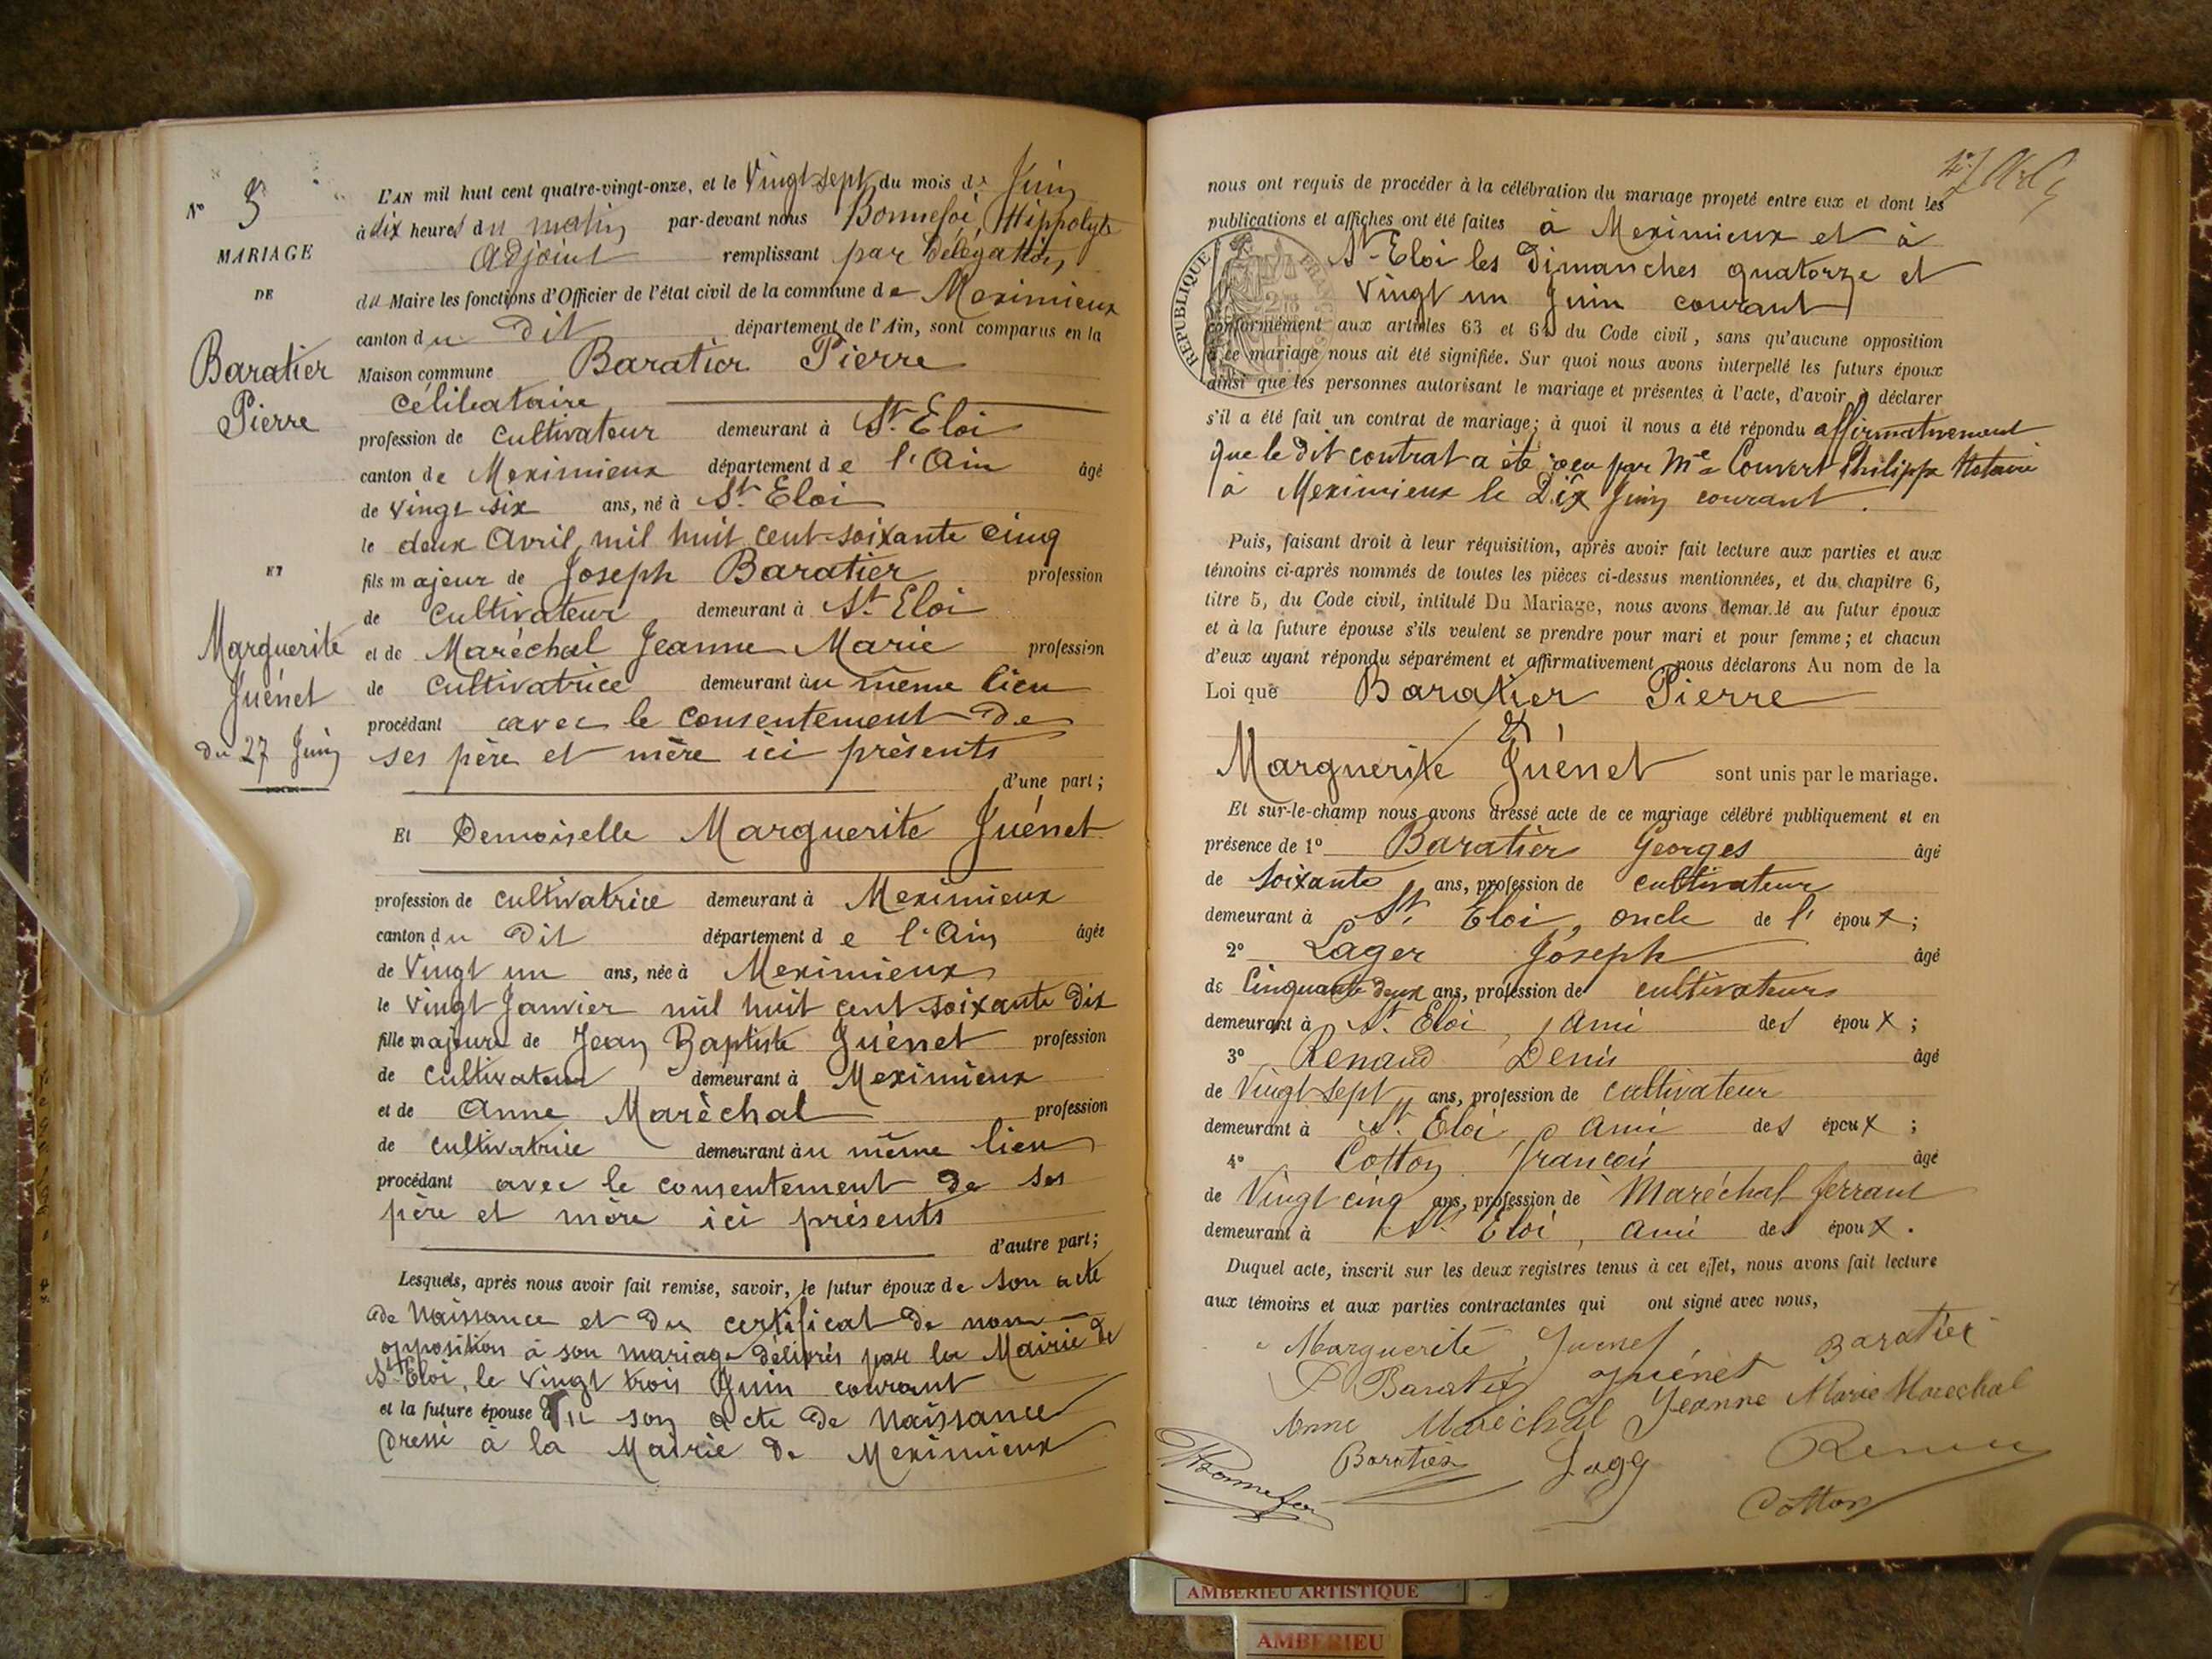 N° 5
MARIAGE
DE
Baratier
Pierre
ET
Marguerite
Juénet
du 27 Juin
L'AN mil huit cent quatre-vingt-onze, et le Vingt sept du mois de Juin
à dix heures du matin par-devant nous Bonnefoi Hippolyte
adjoint remplissant par Délégation
du Maire les fonctions d'Officier de l'état civil de la commune de Meximieux
canton du Dit département de l'Ain, sont comparus en la
Maison commune Baratier Pierre
Célibataire
profession de cultivateur demeurant à St. Eloi
canton de Meximieux département de l'Ain âgé
de vingt six ans, né à St. Eloi
le deux Avril mil huit cent soixante cinq
fils majeur de Joseph Baratier profession
de cultivateur demeurant à St. Eloi
et de Maréchal Jeanne Marie profession
de cultivatrice demeurant au même lieu
procédant avec le consentement de
ses père et mère ici présents
d'une part;
Et Demoiselle Marguerite Juénet
profession de cultivatrice demeurant à Meximieux
canton du Dit département de l'Ain âgée
de Vingt un ans, née à Meximieux
le vingt Janvier mil huit cent soixante dix
fille majeure de Jean Baptiste Juénet profession
de cultivateur demeurant à Meximieux
et de Anne Maréchal profession
de cultivatrice demeurant au même lieu
procédant avec le consentement de ses
père et mère ici présents
d'autre part;
Lesquels, après nous avoir fait remise, savoir, le futur époux de son acte
de Naissance et du certificat de non
opposition à son mariage délivrés par la Mairie de
St Eloi, le vingt trois Juin courant
et la future épouse son acte de Naissance
Dressé à la Mairie de Meximieux
nous ont requis de procéder à la célébration du mariage projeté entre eux et dont les
publications et affiches ont été faites à Meximieux et à
St-Eloi les Dimanches quatorze et
vingt un Juin courant
RÉPUBLIQUE FRANÇAISE
conformément aux articles 63 et 64 du Code civil, sans qu'aucune opposition
à ce mariage nous ait été signifiée. Sur quoi nous avons interpellé les futurs époux
ainsi que les personnes autorisant le mariage et présentes à l'acte, d'avoir à déclarer
s'il a été fait un contrat de mariage; à quoi il nous a été répondu affirmativement
que le dit contrat a été reçu par Me Convert Philippe Notaire
à Meximieux le Dix Juin courant.
Puis, faisant droit à leur réquisition, après avoir fait lecture aux parties et aux
témoins ci-après nommés de toutes les pièces ci-dessus mentionnées, et du chapitre 6,
titre 5, du Code civil, intitulé Du Mariage, nous avons demandé au futur époux
et à la future épouse s'ils veulent se prendre pour mari et pour femme; et chacun
d'eux ayant répondu séparément et affirmativement, nous déclarons Au nom de la
Loi que Baratier Pierre
et
Marguerite Juénet sont unis par le mariage.
Et sur-le-champ nous avons dressé acte de ce mariage célébré publiquement et en
présence de 1° Baratier Georges âgé
de soixante ans, profession de cultivateur
demeurant à St. Eloi, oncle de l'époux;
2° Lager Joseph âgé
de Cinquante deux ans, profession de cultivateur
demeurant à St. Eloi, Ami des époux;
3° Renaud Denis âgé
de Vingt sept ans, profession de cultivateur
demeurant à St. Eloi, ami des époux;
4° Cotton François âgé
de Vingt cinq ans, profession de Maréchal ferrant
demeurant à St. Eloi, ami des époux.
Duquel acte, inscrit sur les deux registres tenus à cet effet, nous avons fait lecture
aux témoins et aux parties contractantes qui ont signé avec nous,
Marguerite Juenet Baratier
P Baratier Juénet
Anne Maréchal Jeanne Marie Marechal
Baratier
HBonnefoi
Cotton
AMBERIEU ARTISTIQUE
AMBERIEU